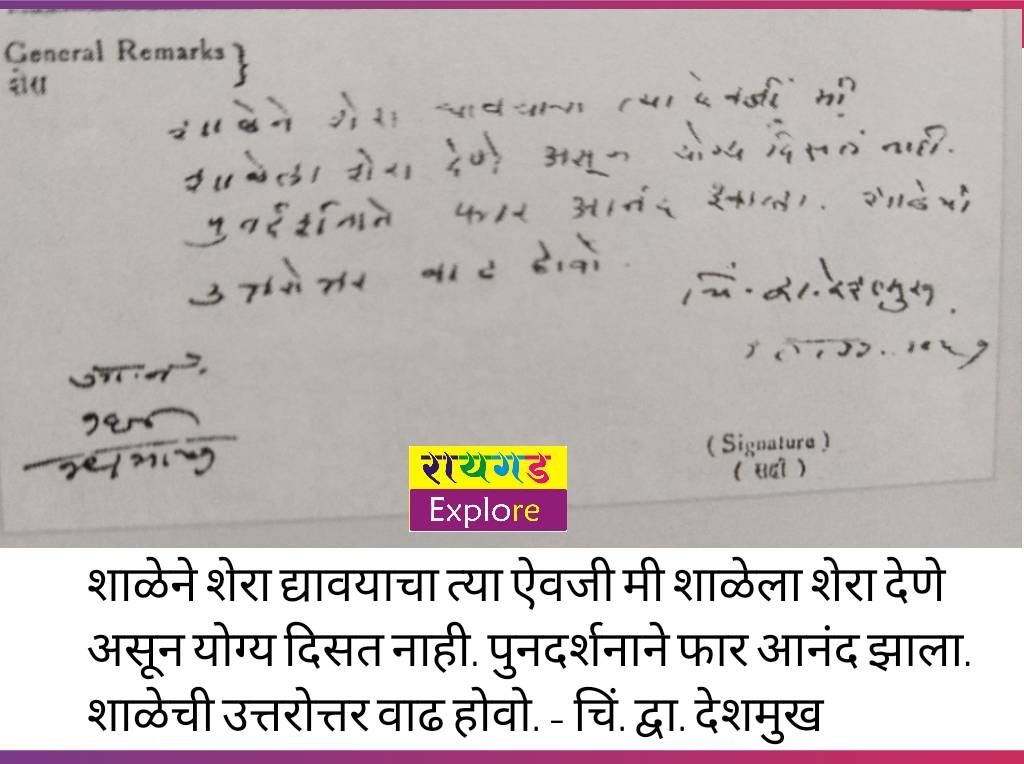 General Remarks }
शेरा
शाळेने शेरा द्यावयाचा त्या ऐवजीं मी
शाळेला शेरा देणे असून योग्य दिसत नाही.
पुनर्दर्शनाने फार आनंद झाला. शाळेची
उत्तरोत्तर वाढ होवो.
चिं. द्वा. देशमुख.
(Signature)
(सही)
रायगड
Explore
शाळेने शेरा द्यावयाचा त्या ऐवजी मी शाळेला शेरा देणे
असून योग्य दिसत नाही. पुनदर्शनाने फार आनंद झाला.
शाळेची उत्तरोत्तर वाढ होवो. - चिं. द्वा. देशमुख